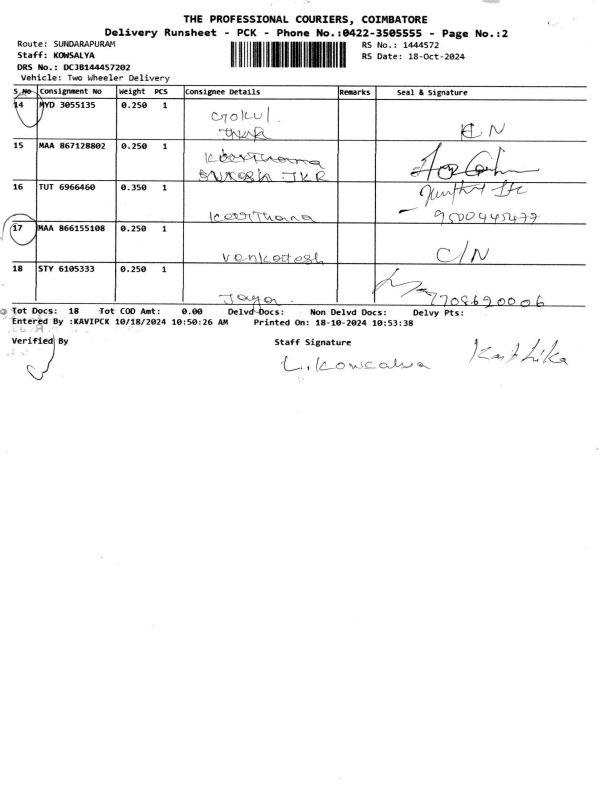 THE PROFESSIONAL COURIERS, COIMBATORE
Delivery Runsheet - PCK - Phone No.:0422-3505555 - Page No.:2
Route: SUNDARAPURAM RS No.: 1444572
Staff: KOWSALYA RS Date: 18-Oct-2024
DRS No.: DC3B144457202
Vehicle: Two Wheeler Delivery
S_No Consignment No Weight PCS Consignee Details Remarks Seal & Signature
14 MYD 3055135 0.250 1
Gokul
15 MAA 867128802 0.250 1
Keerthana
Suresh JKR
16 TUT 6966460 0.350 1
Keerthana
17 MAA 866155108 0.250 1
Venkatesh C/N
18 STY 6105333 0.250 1
Jaya 7708620006
Tot Docs: 18 Tot COD Amt: 0.00 Delvd Docs: Non Delvd Docs: Delvy Pts:
Entered By :KAVIPCK 10/18/2024 10:50:26 AM Printed On: 18-10-2024 10:53:38
Verified By Staff Signature
L. Kowsalya Karthika